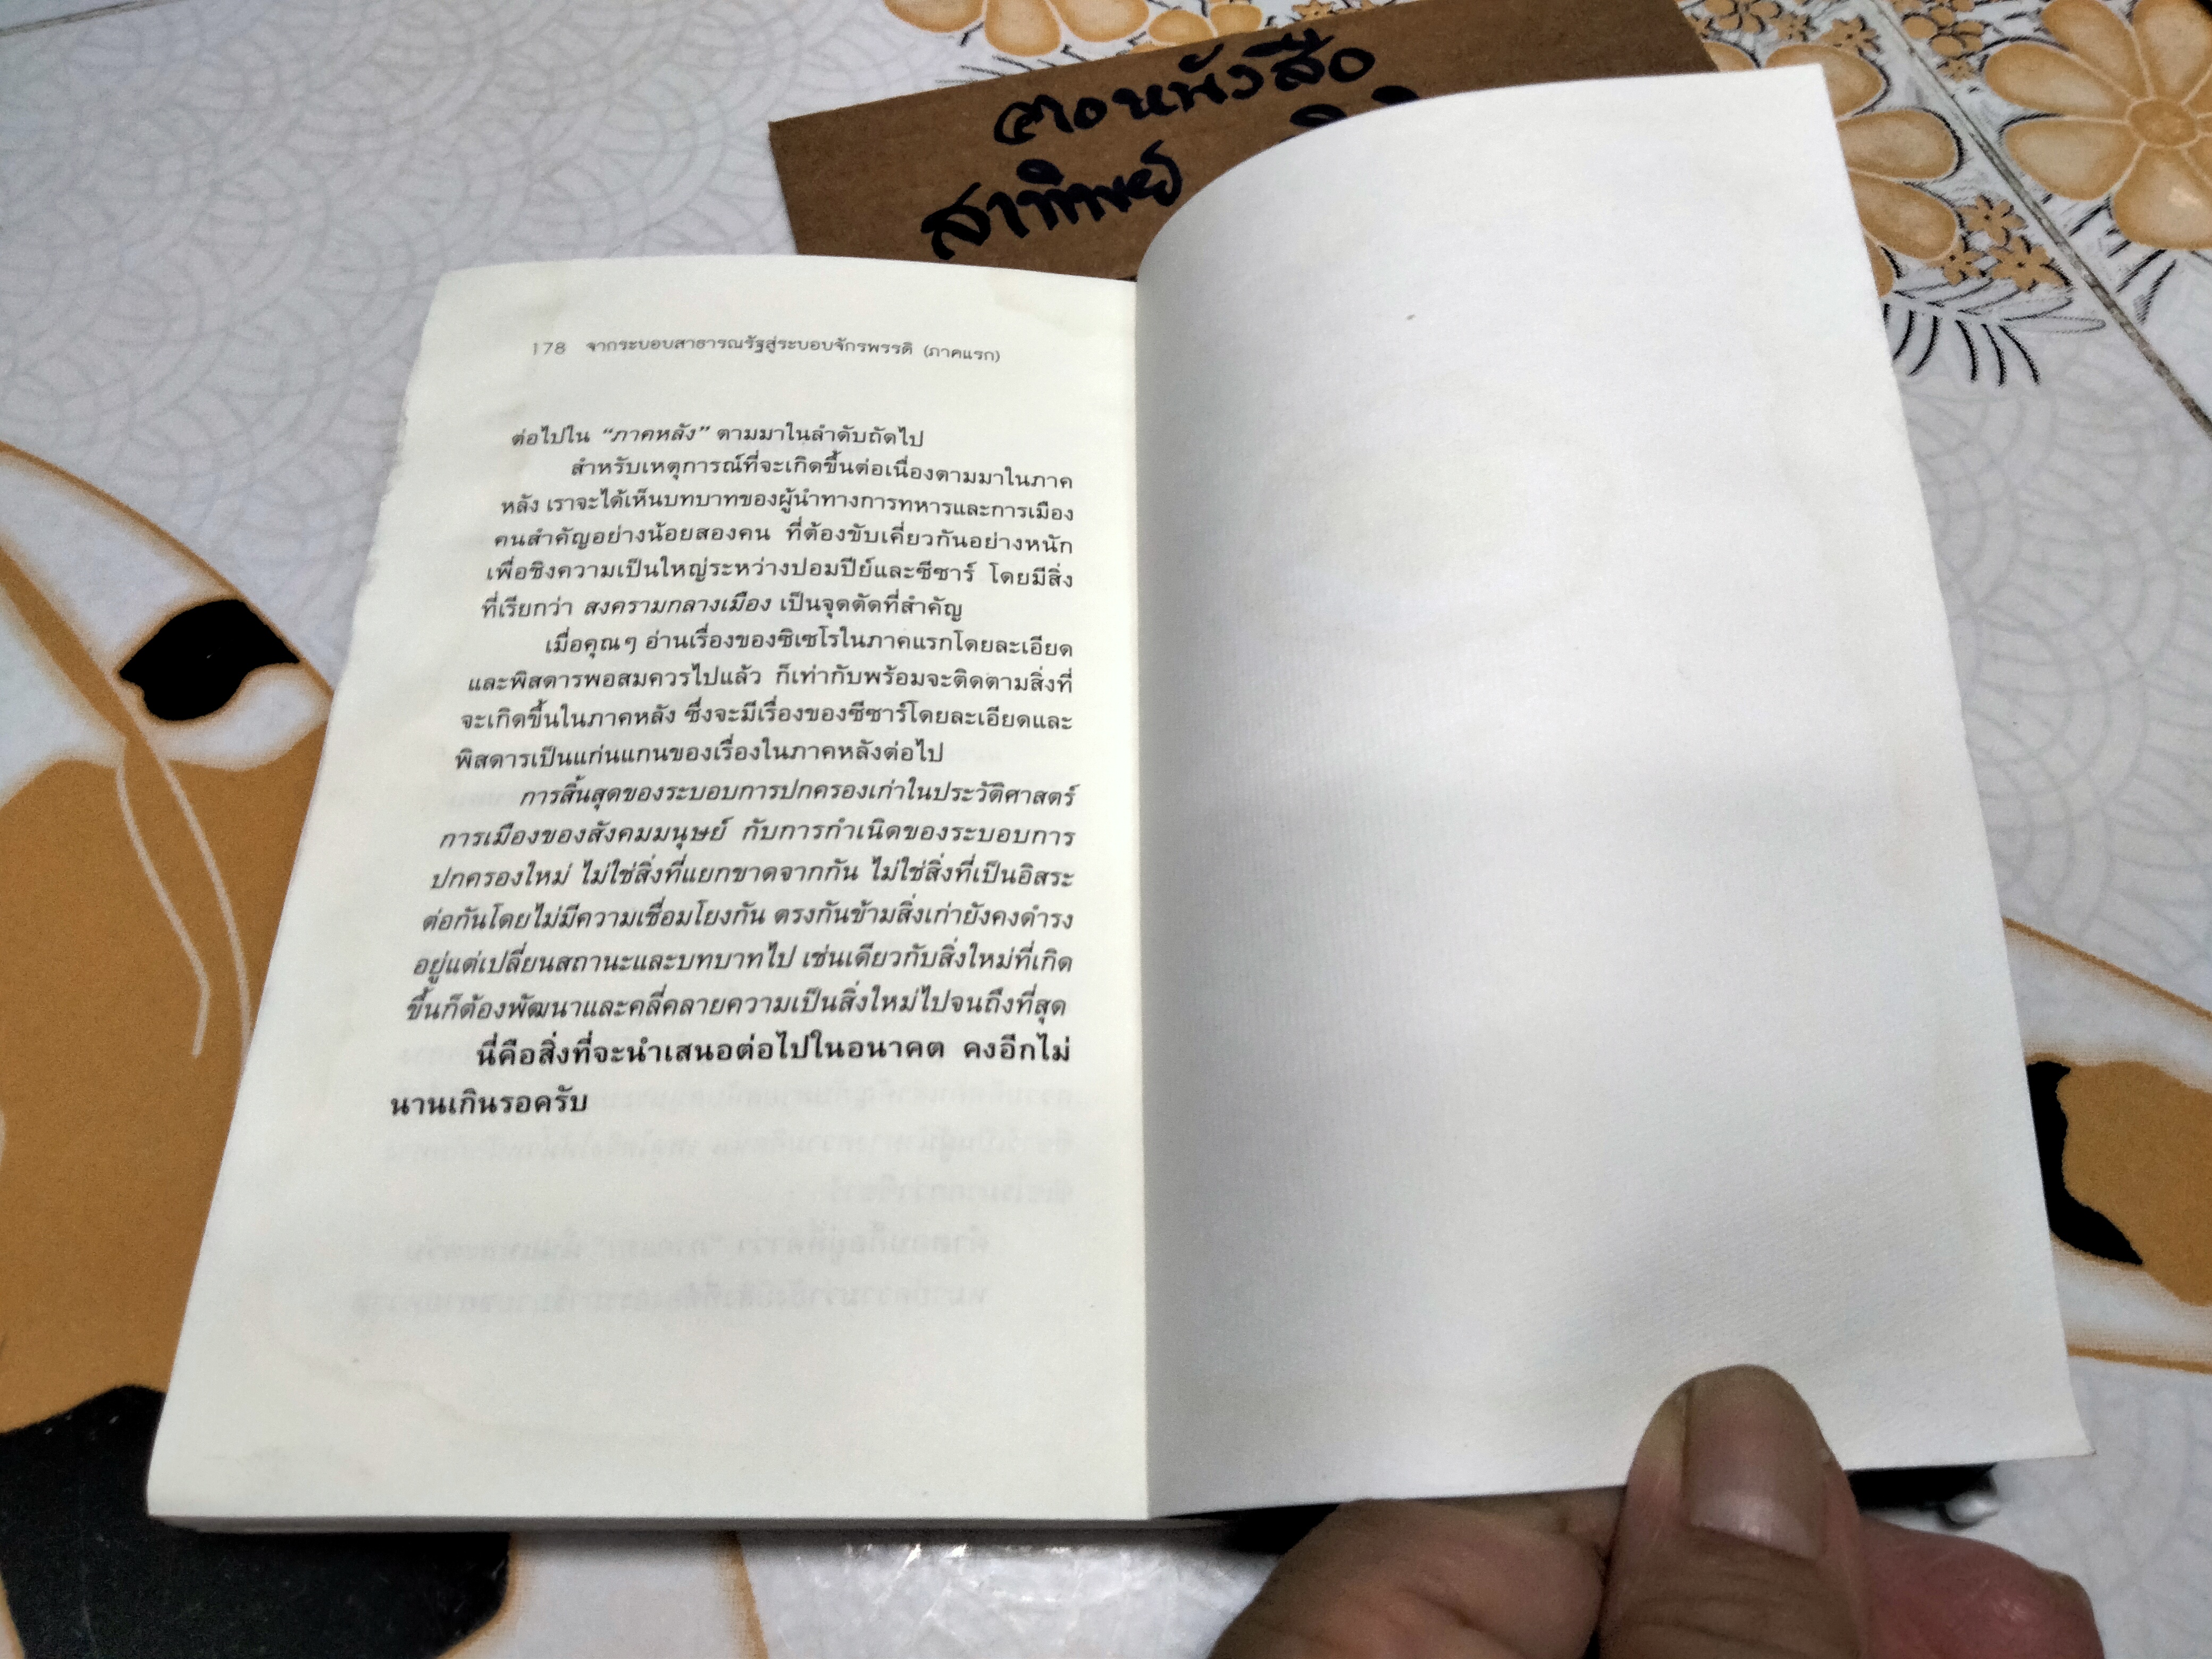 หนังสือ
178 จากระบอบสาธารณรัฐสู่ระบอบจักรพรรดิ (ภาคแรก)
ต่อไปใน “ภาคหลัง” ตามมาในลำดับถัดไป
สำหรับเหตุการณ์ที่จะเกิดขึ้นต่อเนื่องตามมาในภาค
หลัง เราจะได้เห็นบทบาทของผู้นำทางการทหารและการเมือง
คนสำคัญอย่างน้อยสองคน ที่ต้องขับเคี่ยวกันอย่างหนัก
เพื่อชิงความเป็นใหญ่ระหว่างปอมปีย์และซีซาร์ โดยมีสิ่ง
ที่เรียกว่า สงครามกลางเมือง เป็นจุดตัดที่สำคัญ
เมื่อคุณๆ อ่านเรื่องของซิเซโรในภาคแรกโดยละเอียด
และพิสดารพอสมควรไปแล้ว ก็เท่ากับพร้อมจะติดตามสิ่งที่
จะเกิดขึ้นในภาคหลัง ซึ่งจะมีเรื่องของซีซาร์โดยละเอียดและ
พิสดารเป็นแก่นแกนของเรื่องในภาคหลังต่อไป
การสิ้นสุดของระบอบการปกครองเก่าในประวัติศาสตร์
การเมืองของสังคมมนุษย์ กับการกำเนิดของระบอบการ
ปกครองใหม่ ไม่ใช่สิ่งที่แยกขาดจากกัน ไม่ใช่สิ่งที่เป็นอิสระ
ต่อกันโดยไม่มีความเชื่อมโยงกัน ตรงกันข้ามสิ่งเก่ายังคงดำรง
อยู่แต่เปลี่ยนสถานะและบทบาทไป เช่นเดียวกับสิ่งใหม่ที่เกิด
ขึ้นก็ต้องพัฒนาและคลี่คลายความเป็นสิ่งใหม่ไปจนถึงที่สุด
นี่คือสิ่งที่จะนำเสนอต่อไปในอนาคต คงอีกไม่
นานเกินรอครับ